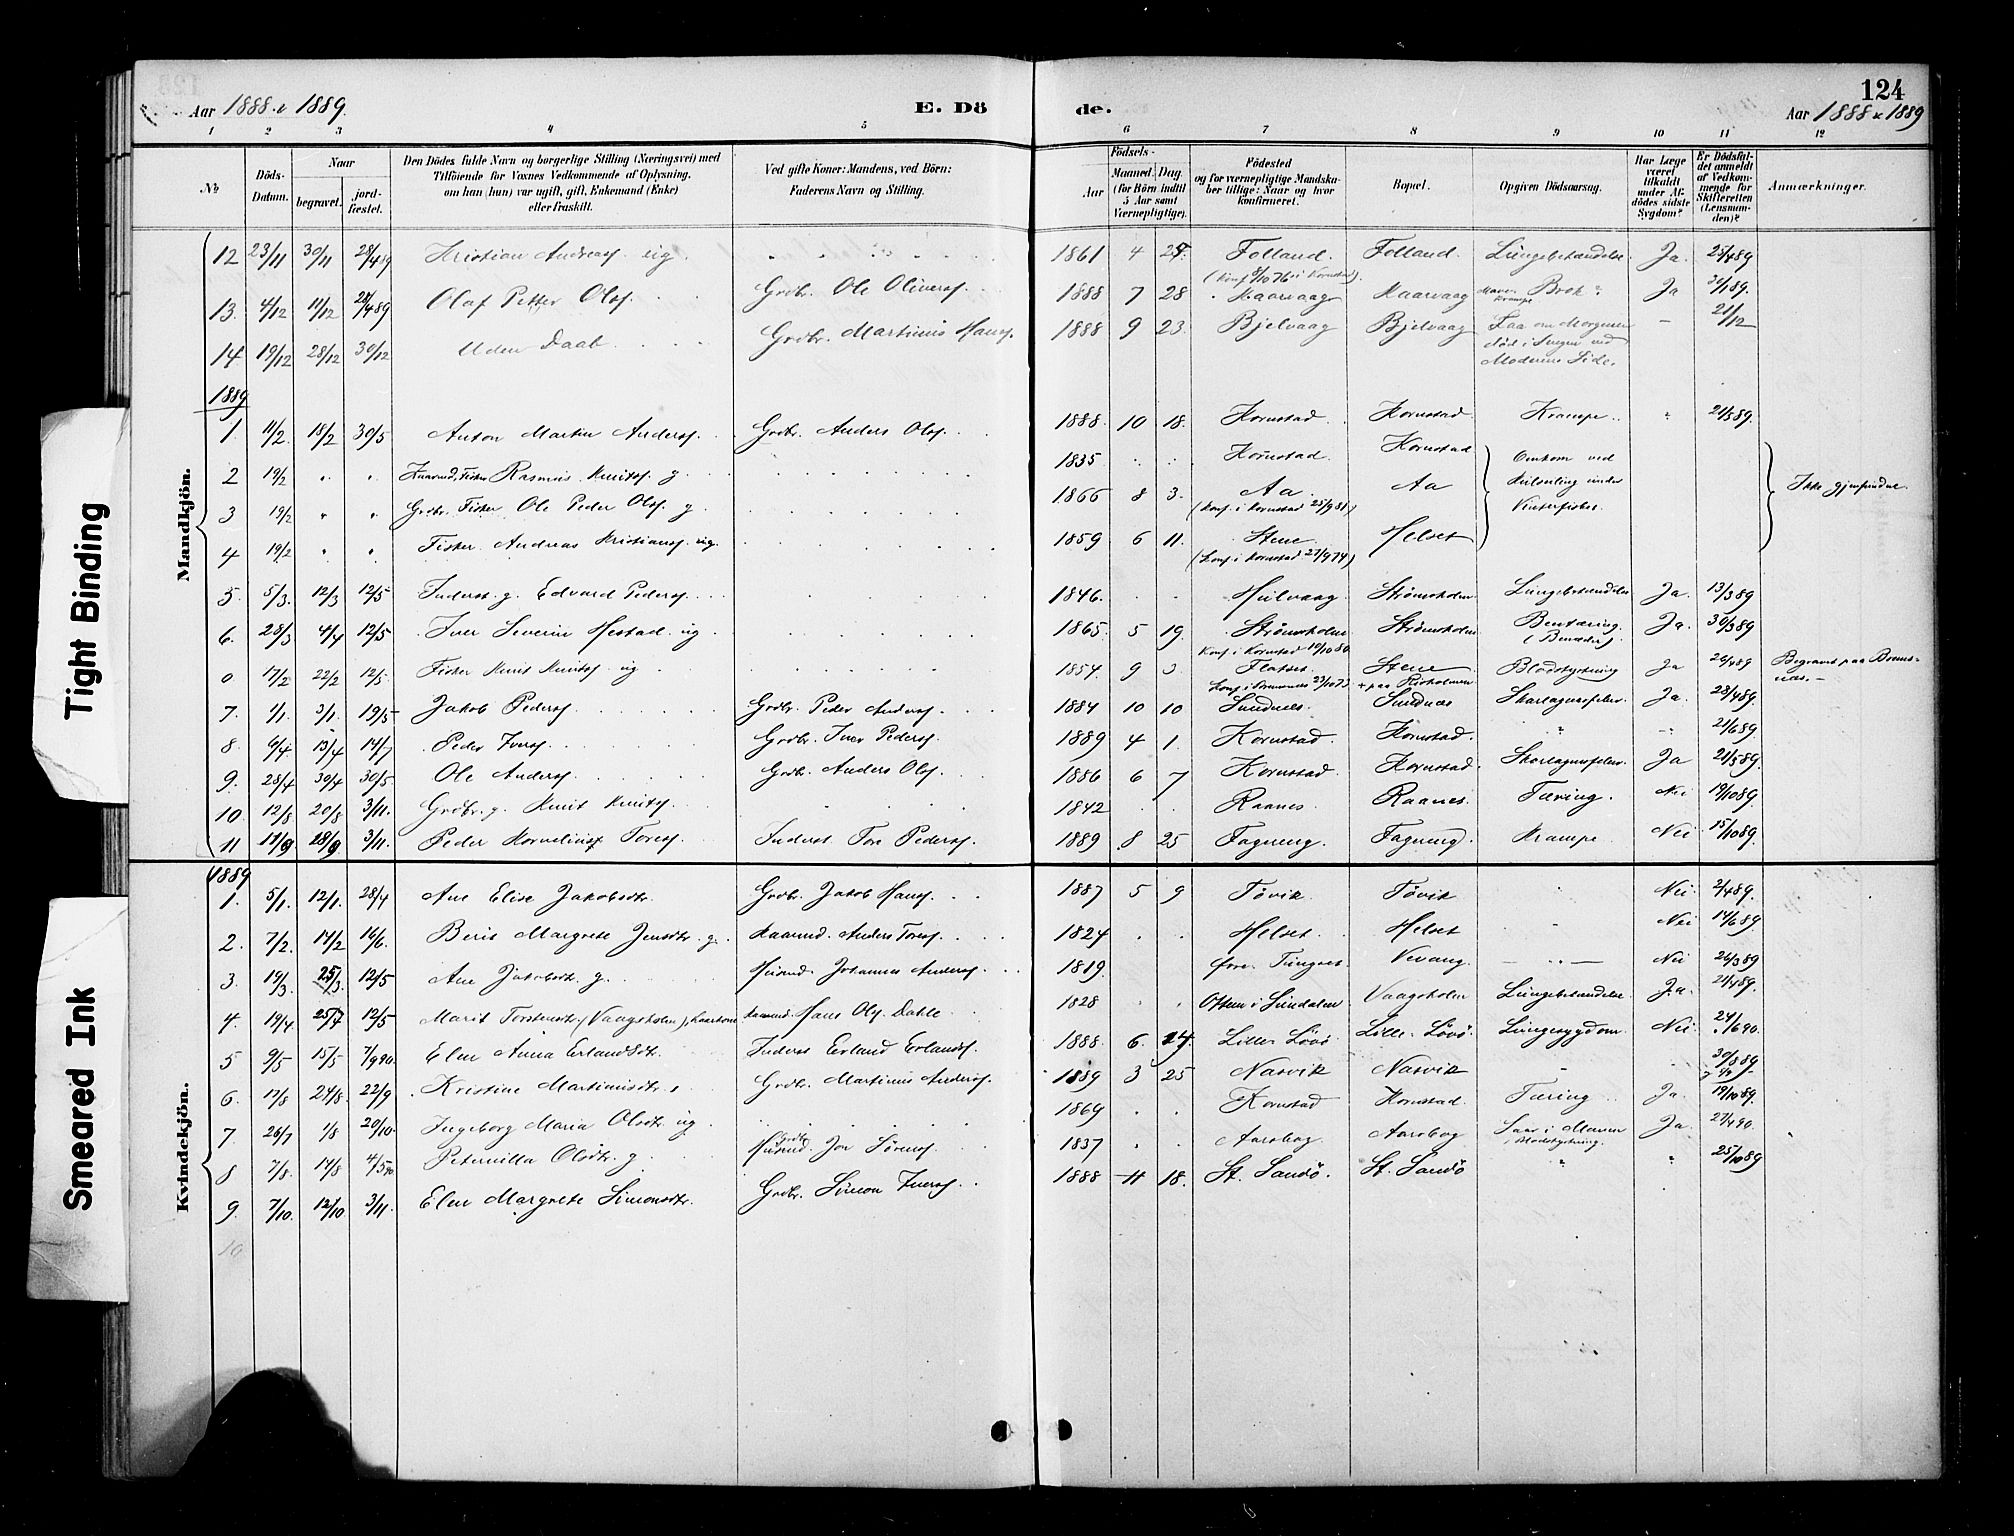 124
Aar 1888 & 1889.
E. Dö
de.
Aar 1888 & 1889
1 2 3 4 5 6 7 8 9 10 11 12
No
Döds-Datum.
Naar
begravet.
jord-fæstet.
Den Dödes fulde Navn og borgerlige Stilling (Næringsvei) med
Tilföiende for Voxnes Vedkommende af Oplysning,
om han (hun) var ugift, gift, Enkemand (Enke)
eller fraskilt.
Ved gifte Koner: Mandens, ved Börn:
Faderens Navn og Stilling.
Födsels-
Aar
Maaned. Dag.
(for Börn indtil
5 Aar samt
Værnepligtige).
Födested
og for værnepligtige Mandska-
ber tillige: Naar og hvor
konfirmeret.
Bopæl.
Opgiven Dödsaarsag.
Har Læge
været
tilkaldt
under Af-
dödes sidste
Sygdom?
Er Dödsfal-
det anmeldt
af Vedkom-
mende for
Skifteretten
(Lensman-
den)?
Anmærkninger.
Mandkjön.
12 23/11 30/11 28/4 89 Kristian Andreass. ug. 1861 4 27. Folland. (Konf 8/10 76 i Kornstad). Folland. Lungebetændelse Ja. 25/4 89
13. 4/12 11/12 28/4 89 Olaf Petter Olss. Grdbr. Ole Oliverss. 1888 7 28 Kaarvaag Kaarvaag Ja 30/1 89.
14 19/12 28/12 30/12 Uden Daab Grdbr. Martinus Hanss. 1888 9 23. Bjelvaag Bjelvaag Laa om Morgenen
død i Sengen ved
Moderens Side. - 21/12
1889
1. 11/2. 18/2 30/5 Anton Martin Anderss. Grdbr. Anders Olss. 1888. 10 18. Kornstad. Kornstad. Krampe. " 21/5 89.
2 19/2 " " Fisker Rasmus Knutss. g. 1835 Kornstad. Kornstad Omkom ved
3 19/2 " " Grdbr. Fisker Ole Peder Olss. g. 1866 8 3. Aa. (Konf. i Kornstad 25/9 81) Aa Kulseiling under
Vinterfisket. Ikke gjenfundne.
4 19/2 " " Fisker. Andreas Kristianss. ug. 1859 6 11. Stene (Konf i Kornstad 27/9 74) Helset
5. 5/3. 12/3 12/5 Inderst. g. Edvard Pederss. 1846. Hulvaag. Strømsholm Lungebetændelse Ja. 13/3 89
6. 28/3 4/4 12/5 Iver Severin Hestad ug 1865. 5 19 Strømsholm Konf. i Kornstad 19/10 80. Strømsholm Bentæring. Ja. 30/3 89
0 17/2 22/2 12/5. Fisker Knut Knutss ug 1854. 9 3 Flatset. Stene + paa Risholmen Blodstyrtning Ja 26/4 89 Begravet paa Brems-
næs.-
7. 1/1. 3/1. 19/5 Jakob Pederss. Grdbr. Peder Anderss. 1884 10 10 Sundnæs. Sundnæs Skarlagensfeber. Ja. 28/4 89.
8. 6/4. 13/4 14/7 Peder Iverss. Grdbr. Iver Pederss. 1889 4 1. Kornstad. Kornstad. " - 21/6 89.
9. 28/4 30/4 30/5. Ole Anderss. Grdbr. Anders Olss. 1886 6 7 Kornstad. Kornstad. Skarlagensfeber. Ja 21/5 89.
10. 12/8 20/8 3/11. Grdbr. g. Knut Knutss. 1842 Raanes. Raanes. Tæring. Nei 19/10 89.
11 17/9 28/9 3/11. Peder Korneliuss Toress. Inderst Tore Pederss. 1889 8 25 Fagereng. Fagereng. Krampe Nei 15/10 89.
Kvindekjön.
1889
1. 5/1. 12/1. 28/4 Ane Elise Jakobsdtr. Grdbr. Jakob Hanss. 1887 5 9 Tøvik. Tøvik Nei. 2/4 89.
2. 7/2. 14/2 16/6. Berit Margrete Jensdtr. g. Kaarmd. Anders Toress. 1824 Helset. Helset Nei 14/6 89
3. 19/3. 25/3. 12/5 Ane Jakobsdtr. g. Husmd. Johannes Anderss. 1819. Øvre Tungnes. Vevang. - " - Nei 26/3 89
4. 19/4 25/4 12/5 Marit Torstensdtr. (Vaagsholm), Kaarkone Kaarmd. Hans Ols. Dahle 1828 Ottem i Sundalen Vaagsholm Lungebetændelse. Ja. 21/4 89.
5 9/5 15/5 7/9 90. Elen Anna Erlandsdtr. Inderst Erland Erlandss. 1888. 6. 14. Lille Løvø Lille Løvø. Lungesygdom. Nei. 24/6 90.
6. 17/8 24/8. 22/9 Kristine Martinusdtr. Grdbr. Martinus Anderss. 1889 3 25 Nasvik Nasvik - - 30/8 89
7. 26/7 1/8 20/10. Ingeborg Maria Olsdtr. ug 1869 Kornstad Kornstad. Tæring Ja. 19/10 89.
8 7/8. 14/8 4/5 90 Peternilla Olsdtr. g. Husmd. Jon Sørenss. 1837 Aarsbog Aarsbog Saar i Maven
Blodstyrtning. Ja. 27/4 90.
9. 7/10. 12/10 3/11. Elen Margrete Simonsdtr. Grdbr. Simon Iverss. 1888 11 18. St. Sandø. St. Sandø " " 25/10 89
10
Tight Binding
Smeared Ink